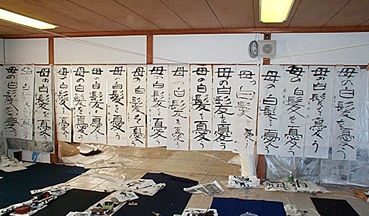 母の白髪を憂う
母の白髪を憂う
母の白髪を憂う
母の白髪を憂う
母の白髪を憂う
母の白髪を憂う
母の白髪を憂う
母の白髪を憂う
母の白髪を憂う
母の白髪を憂う
母の白髪を憂う
母の白髪を憂う
母の白髪を憂う
母の白髪を憂う
母の白髪を憂う
母の白髪を憂う